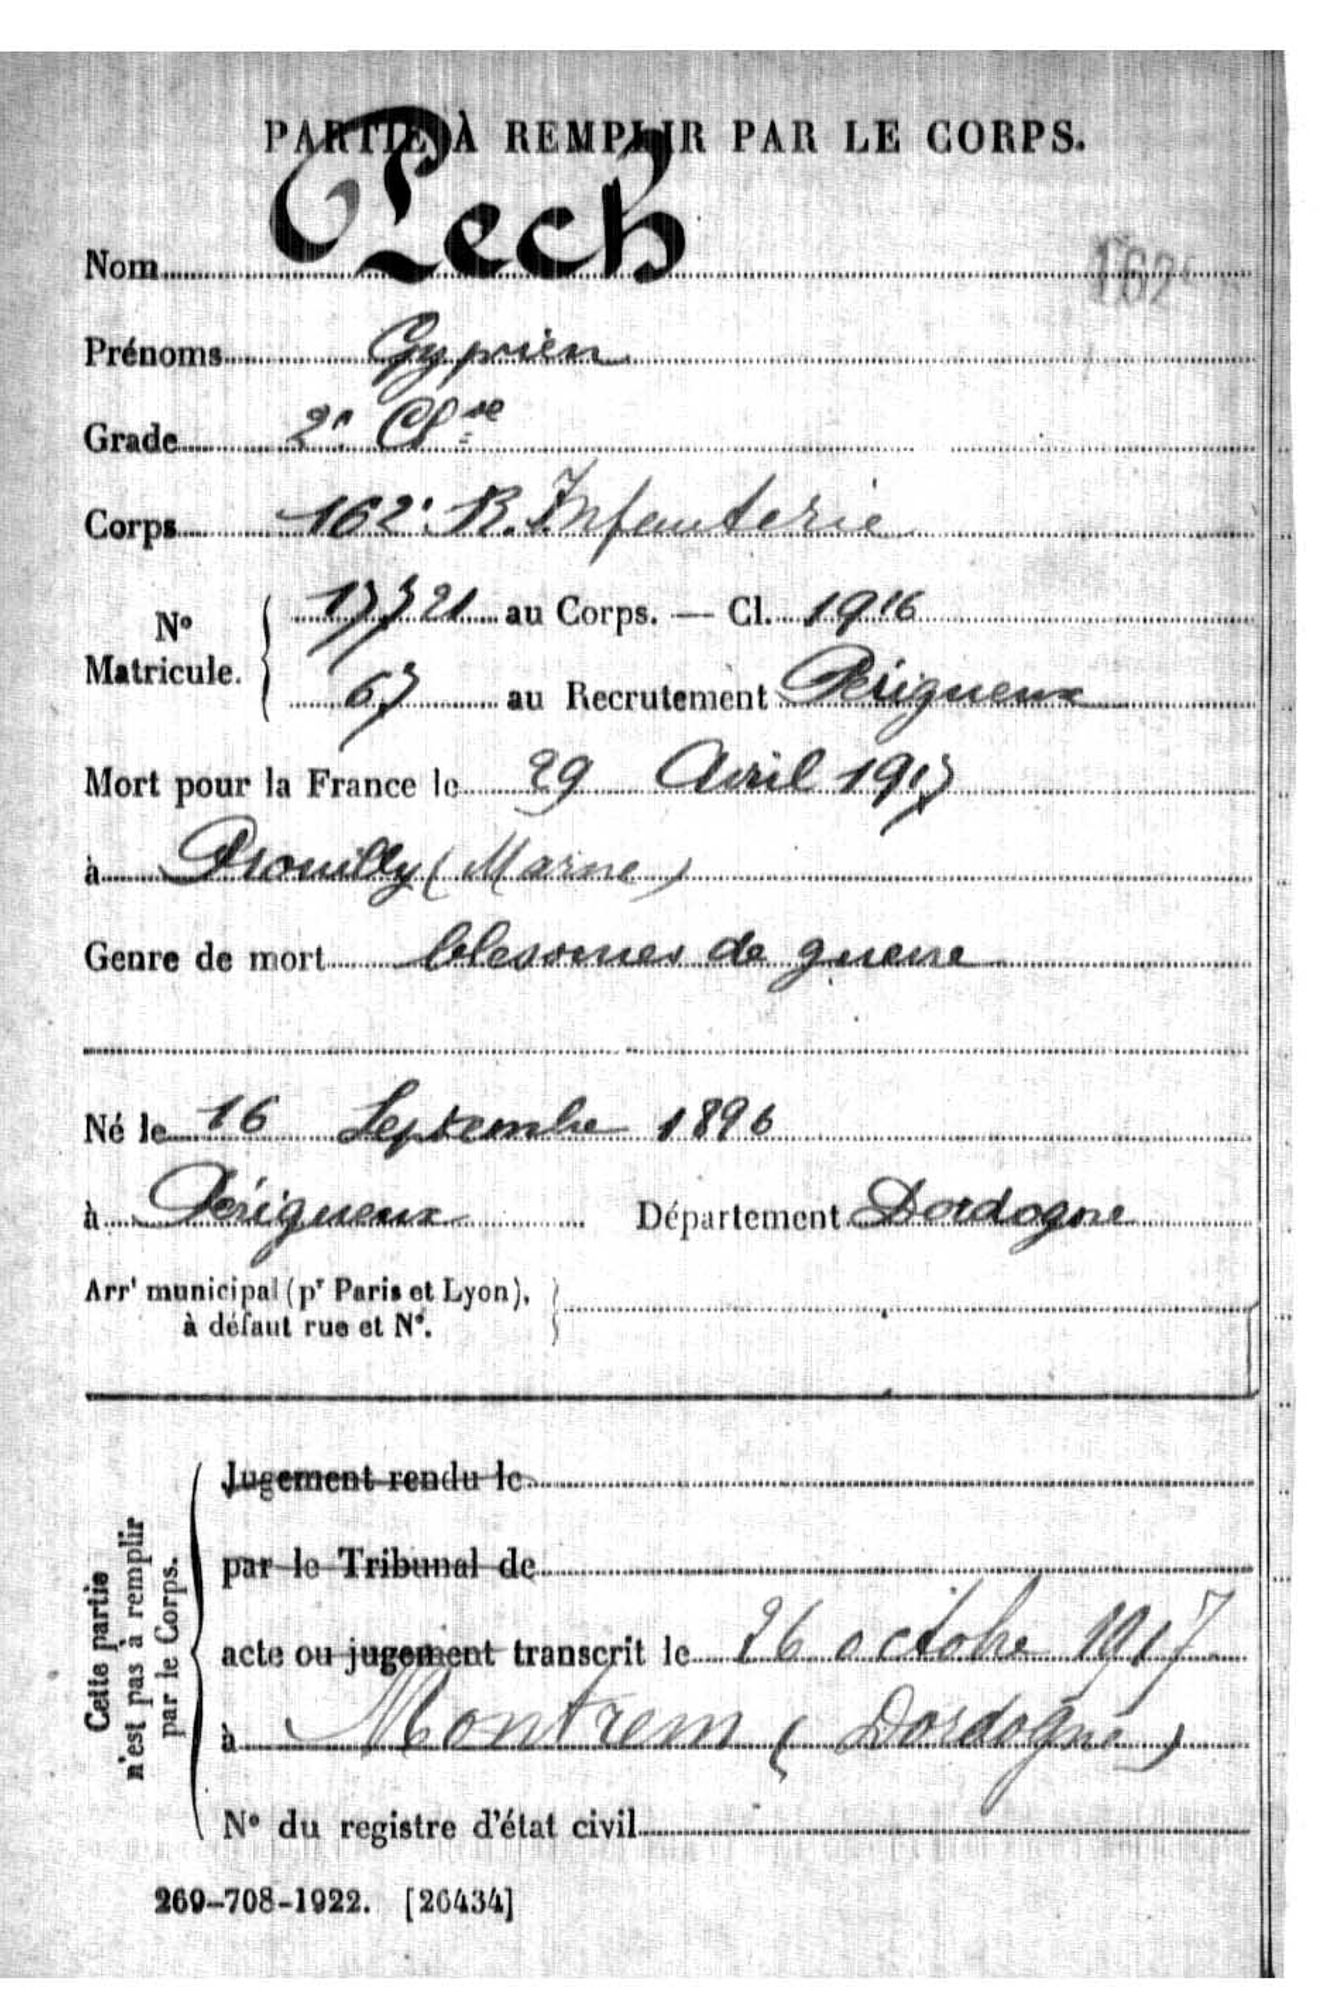 PARTIE À REMPLIR PAR LE CORPS.
Nom Pech
162
Prénoms Cyprien
Grade 2e Cl se
Corps 162e R. Infanterie
No Matricule. 17721 au Corps. — Cl. 1916
67 au Recrutement Périgueux
Mort pour la France le 29 Avril 1917
à Prouilly (Marne)
Genre de mort blessures de guerre
Né le 16 Septembre 1896
à Périgueux Département Dordogne
Arr' municipal (pr Paris et Lyon),
à défaut rue et No.
Cette partie
n'est pas à remplir
par le Corps.
Jugement rendu le
par le Tribunal de
acte ou jugement transcrit le 26 octobre 1917
à Montrem (Dordogne)
No du registre d'état civil
269-708-1922. [26434]